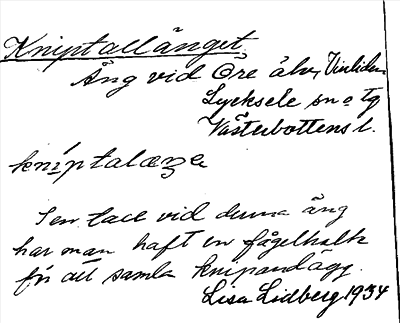 Kniptallänget
Äng vid Öre älv, Vinliden
Lycksele sn o tg
Västerbottens l.
kníptalæŋə
I en tall vid denna äng
har man haft en fågelholk
för att samla knipandägg.
Lisa Lidberg 1934